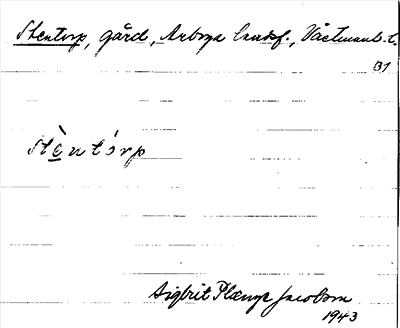 Stentorp, gård, Arboga landsf., Västmanl. l.
B1
Stèntórp
Sigbrit Plænge Jacobson
1943